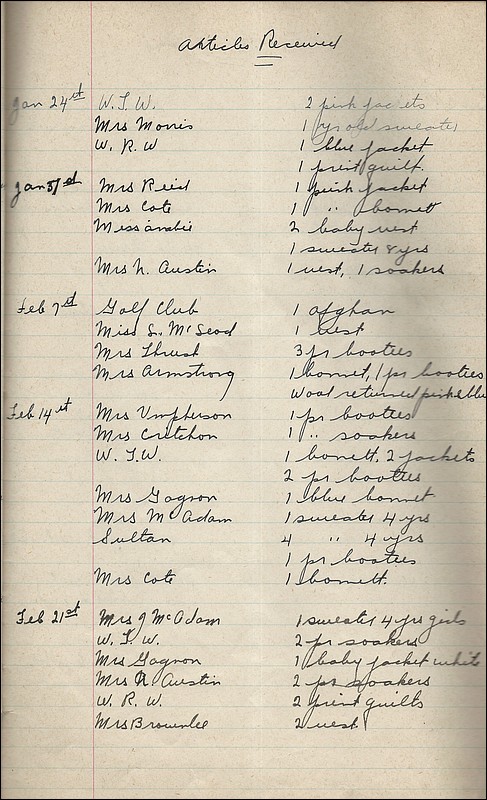 Articles Received
Jan 24st W. I. W. 2 pink jackets
Mrs Morris 1 yr old sweater
W. R. W 1 blue jacket
1 print quilt.
Jan 31st Mrs Reid 1 pink jacket
Mrs Cote 1 " bonett
Miss 2 baby vest
1 sweater 8 yrs
Mrs N. Austin 1 vest, 1 soakers
Feb 7st Golf Club 1 afghan
Miss S. McLeod 1 vest
Mrs 3 pr booties
Mrs Armstrong 1 bonnet, 1 pr booties
wool returned pink & blu
Feb 14st Mrs Umpherson 1 pr booties
Mrs 1 " soakers
W. I. W. 1 bonett. 2 jackets
2 pr booties
Mrs Gagnon 1 blue bonnet
Mrs McAdam 1 sweater 4 yrs
Sultan 4 " 4 yrs
1 pr booties
Mrs Cote 1 bonnett.
Feb 21st Mrs J McAdam 1 sweater 4 yrs girls
W. I. W. 2 pr soakers
Mrs Gagnon 1 baby jacket white
Mrs N. Austin 2 pr soakers
W. R. W. 2 print quilts
Mrs Brownlee 2 vest